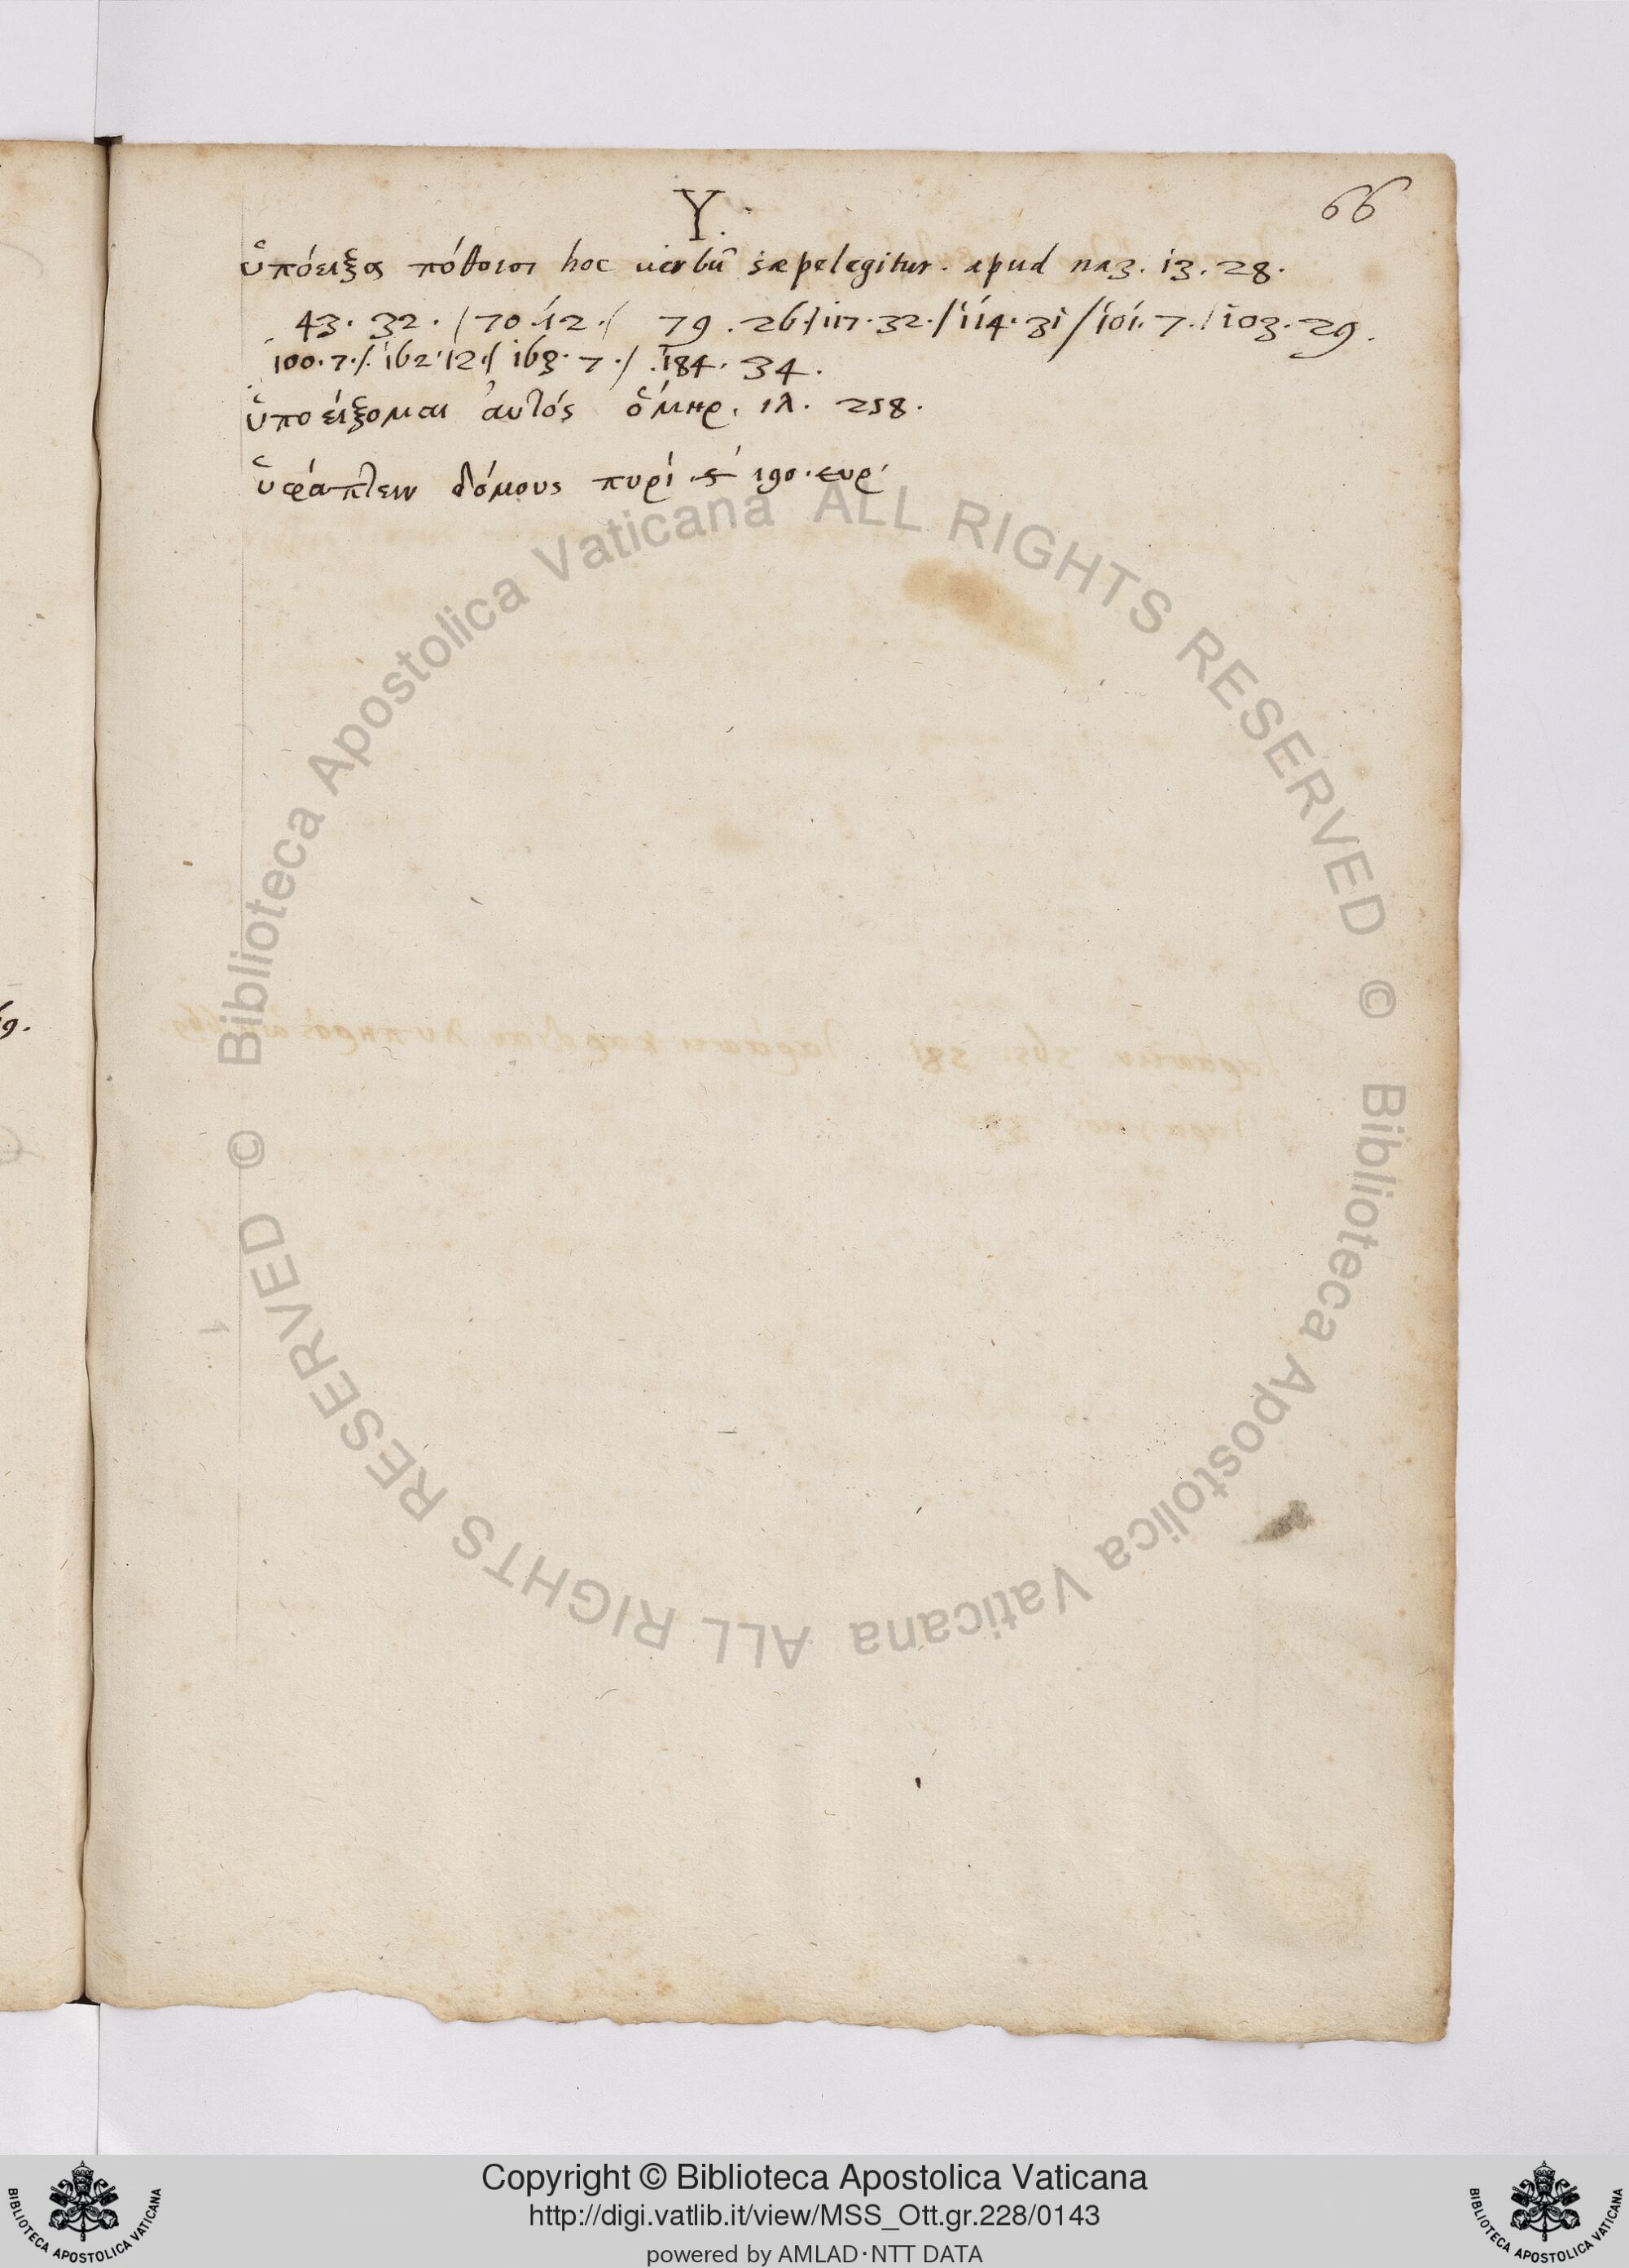 Υ.
66
ὑπόειξας πόθοισι hoc uerbũ sæpe legitur. apud naz. 13. 28.
43. 32. / 70. 12. / 79. 26 / 117. 32. / 114. 31 / 101. 7. / 103. 29.
100. 7. / 162. 12. / 163. 7. / 184. 34.
ὑποείξομαι ἀυτός ὅμηρ. ιλ. 258.
ὑφάπτειν δόμους πυρί 190. ευρ
69.
Biblioteca Apostolica Vaticana ALL RIGHTS RESERVED ©
Biblioteca Apostolica Vaticana ALL RIGHTS RESERVED ©
Copyright © Biblioteca Apostolica Vaticana
http://digi.vatlib.it/view/MSS_Ott.gr.228/0143
powered by AMLAD·NTT DATA
BIBLIOTECA APOSTOLICA VATICANA
BIBLIOTECA APOSTOLICA VATICANA